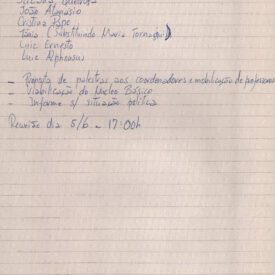 João Atanásio
Cristina Pape
Tania (Substituindo Maria Tornaghi)
Luiz Ernesto
Luiz Alphonsus
- Proposta de palestras aos coordenadores e mobilização de professores
- Viabilização do Núcleo Básico
- Informe s/ situação política
Reunião dia 5/6 - 17:00h